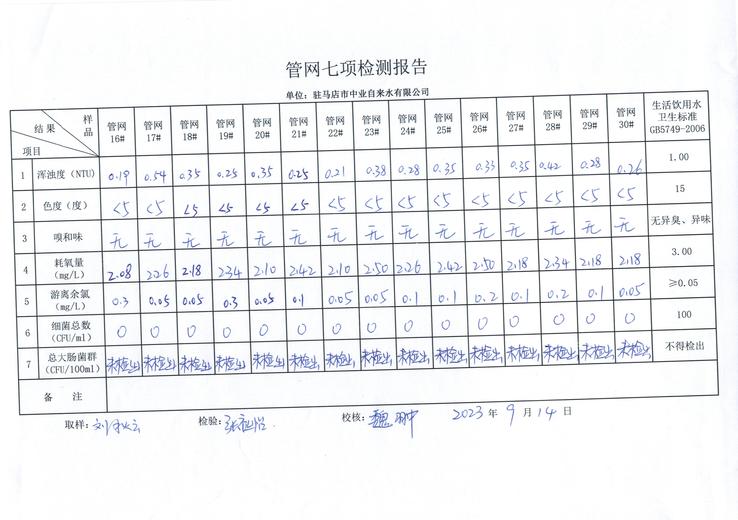 管网七项检测报告
单位：驻马店市中业自来水有限公司
样品 结果 项目 管网16# 管网17# 管网18# 管网19# 管网20# 管网21# 管网22# 管网23# 管网24# 管网25# 管网26# 管网27# 管网28# 管网29# 管网30# 生活饮用水卫生标准GB5749-2006
1 浑浊度（NTU） 0.19 0.54 0.35 0.25 0.35 0.25 0.21 0.38 0.28 0.35 0.33 0.35 0.42 0.28 0.26 1.00
2 色度（度） <5 <5 <5 <5 <5 <5 <5 <5 <5 <5 <5 <5 <5 <5 <5 15
3 嗅和味 无 无 无 无 无 无 无 无 无 无 无 无 无 无 无 无异臭、异味
4 耗氧量（mg/L） 2.08 2.26 2.18 2.34 2.10 2.42 2.10 2.50 2.26 2.42 2.50 2.18 2.34 2.18 2.18 3.00
5 游离余氯（mg/L） 0.3 0.05 0.05 0.3 0.05 0.1 0.05 0.05 0.1 0.1 0.2 0.1 0.2 0.1 0.05 ≥0.05
6 细菌总数（CFU/ml） 0 0 0 0 0 0 0 0 0 0 0 0 0 0 0 100
7 总大肠菌群（CFU/100ml） 未检出 未检出 未检出 未检出 未检出 未检出 未检出 未检出 未检出 未检出 未检出 未检出 未检出 未检出 未检出 不得检出
备 注
取样： 检验： 校核： 2023 年 9 月 14 日